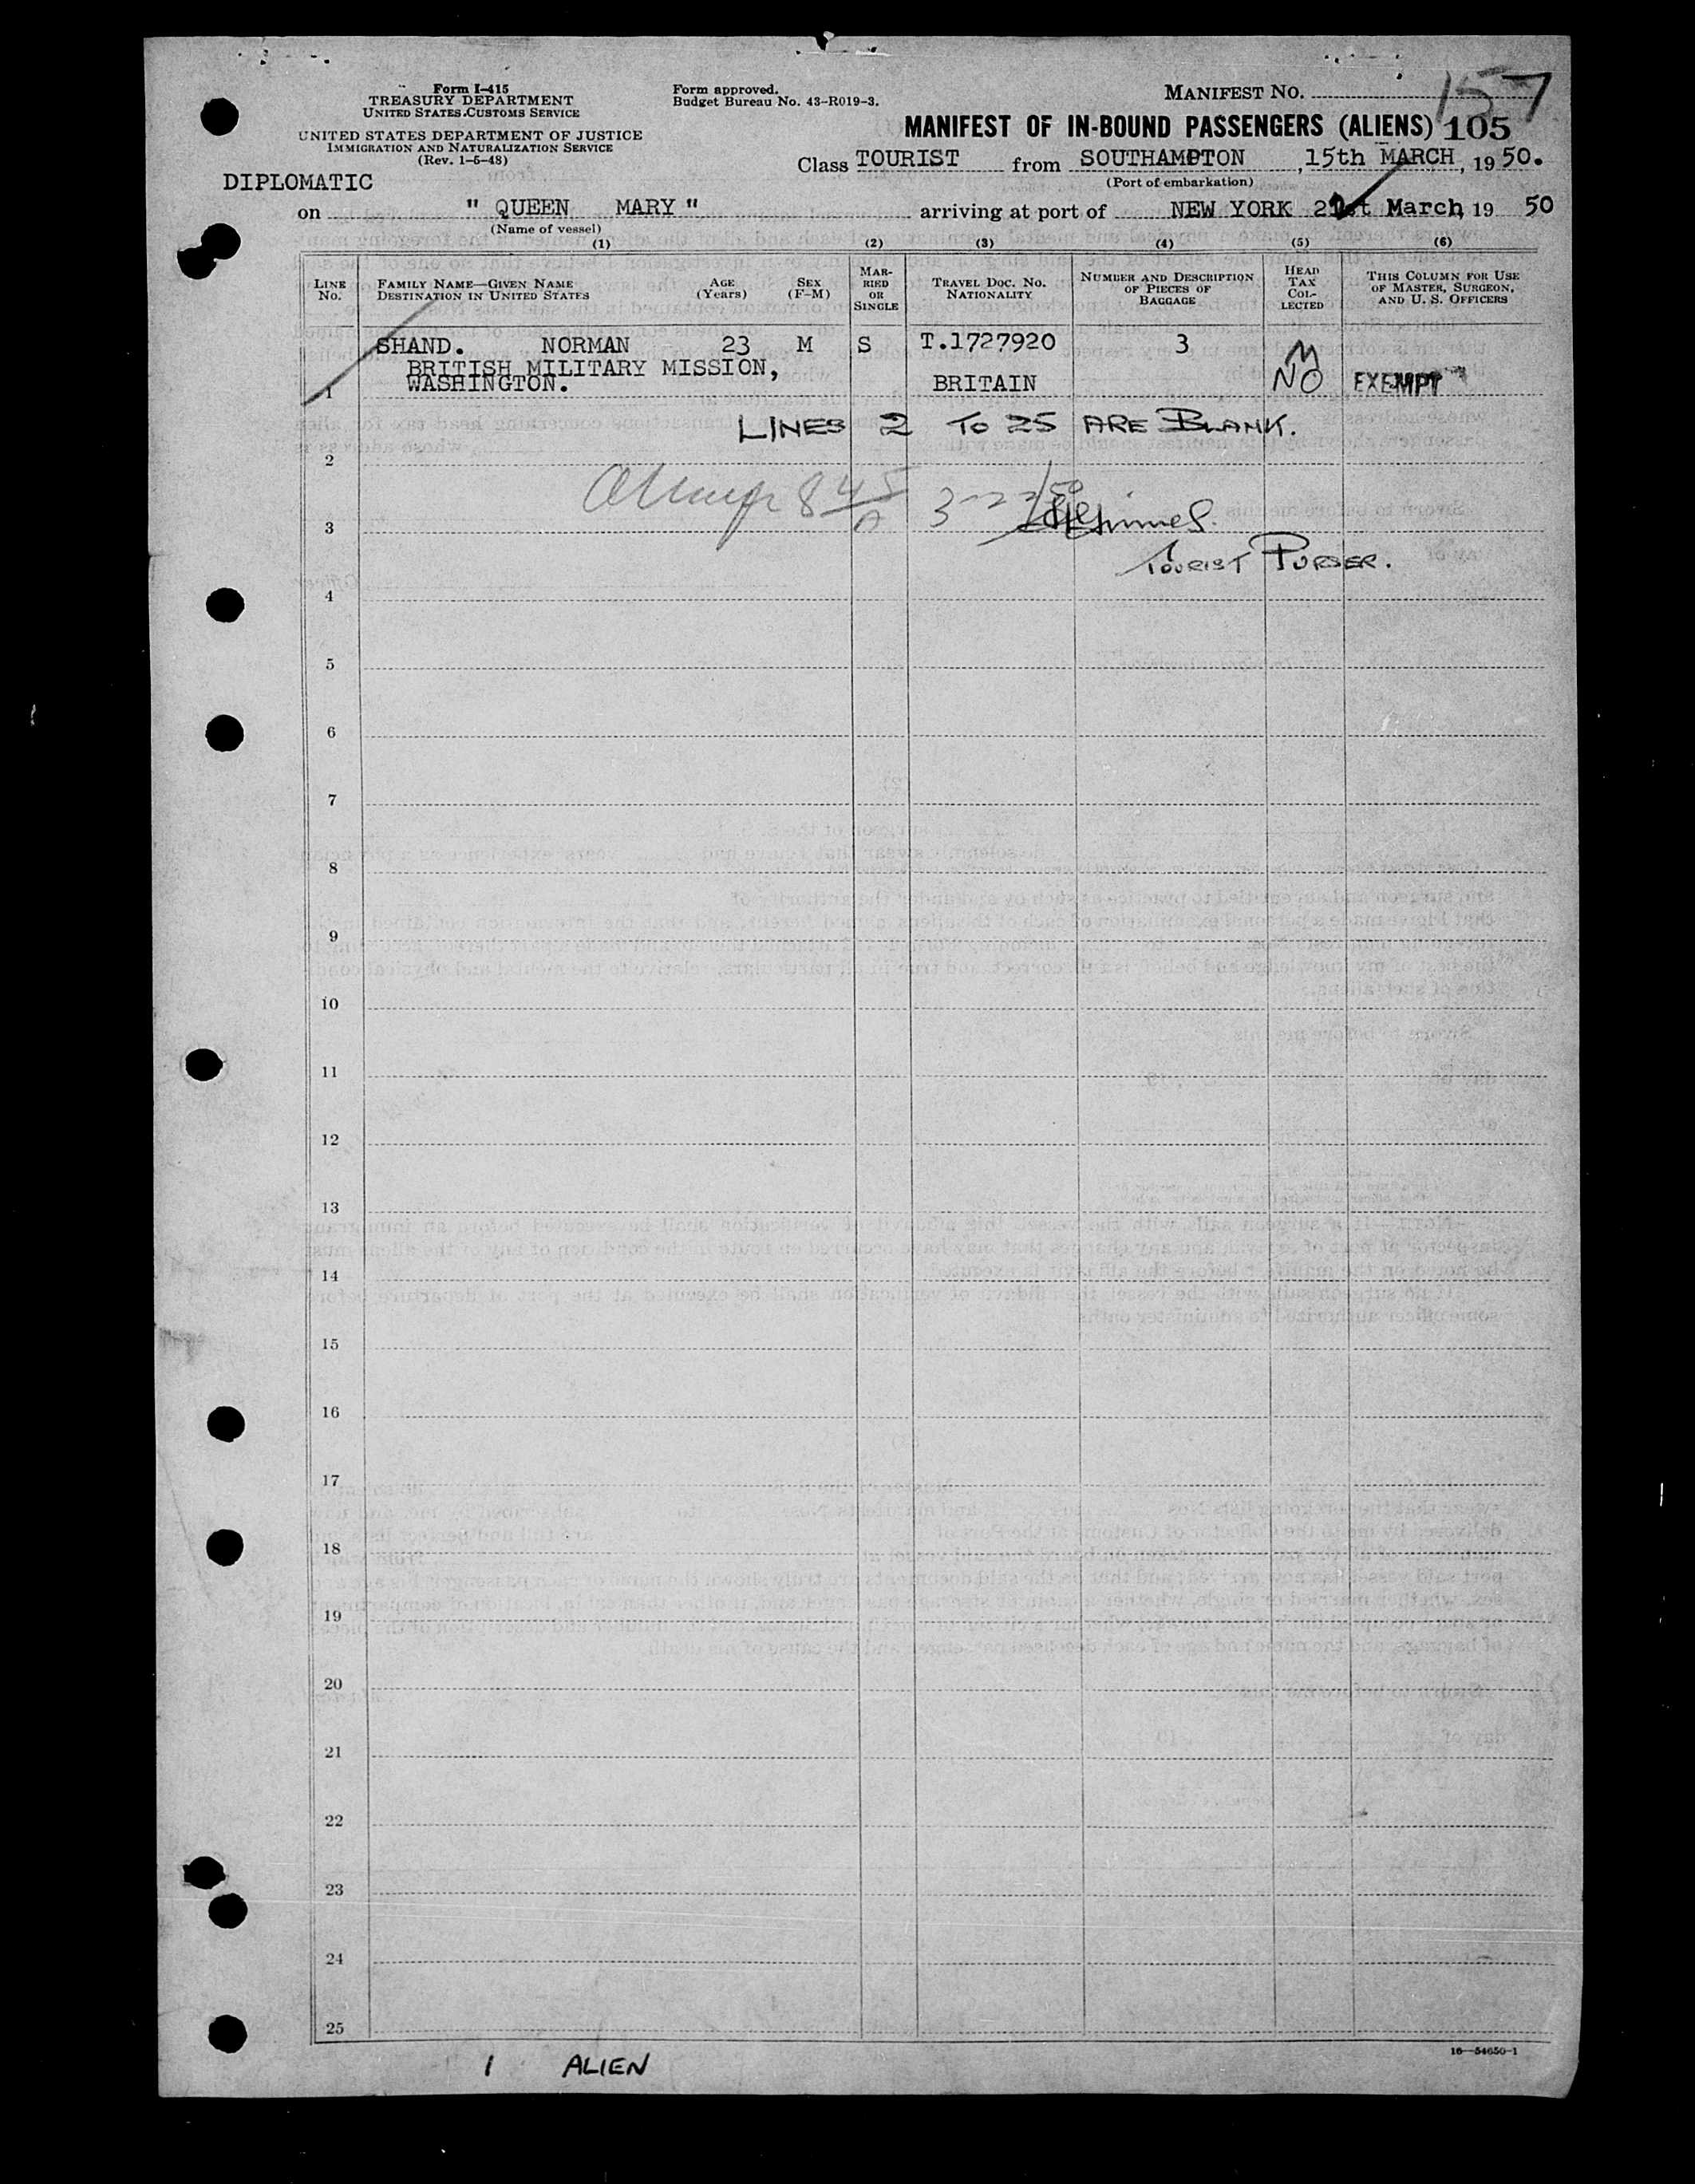 Form I-415
TREASURY DEPARTMENT
UNITED STATES CUSTOMS SERVICE
UNITED STATES DEPARTMENT OF JUSTICE
IMMIGRATION AND NATURALIZATION SERVICE
(Rev. 1-6-48)
Form approved.
Budget Bureau No. 43-R019-3.
MANIFEST NO. 157
MANIFEST OF IN-BOUND PASSENGERS (ALIENS) 105
Class TOURIST from SOUTHAMPTON, 15th MARCH, 1950.
(Port of embarkation)
DIPLOMATIC
on " QUEEN MARY " arriving at port of NEW YORK 21st March, 19 50
(Name of vessel)
(1) (2) (3) (4) (5) (6)
LINE No. FAMILY NAME—GIVEN NAME DESTINATION IN UNITED STATES AGE (Years) SEX (F-M) MARRIED OR SINGLE TRAVEL DOC. NO. NATIONALITY NUMBER AND DESCRIPTION OF PIECES OF BAGGAGE HEAD TAX COLLECTED THIS COLUMN FOR USE OF MASTER, SURGEON, AND U. S. OFFICERS
SHAND. NORMAN 23 M S T.1727920 3
BRITISH MILITARY MISSION,
WASHINGTON. BRITAIN NO EXEMPT
1
LINES 2 TO 25 ARE BLANK.
2
3
TOURIST PURSER.
4
5
6
7
8
9
10
11
12
13
14
15
16
17
18
19
20
21
22
23
24
25
16—54650-1
1 ALIEN